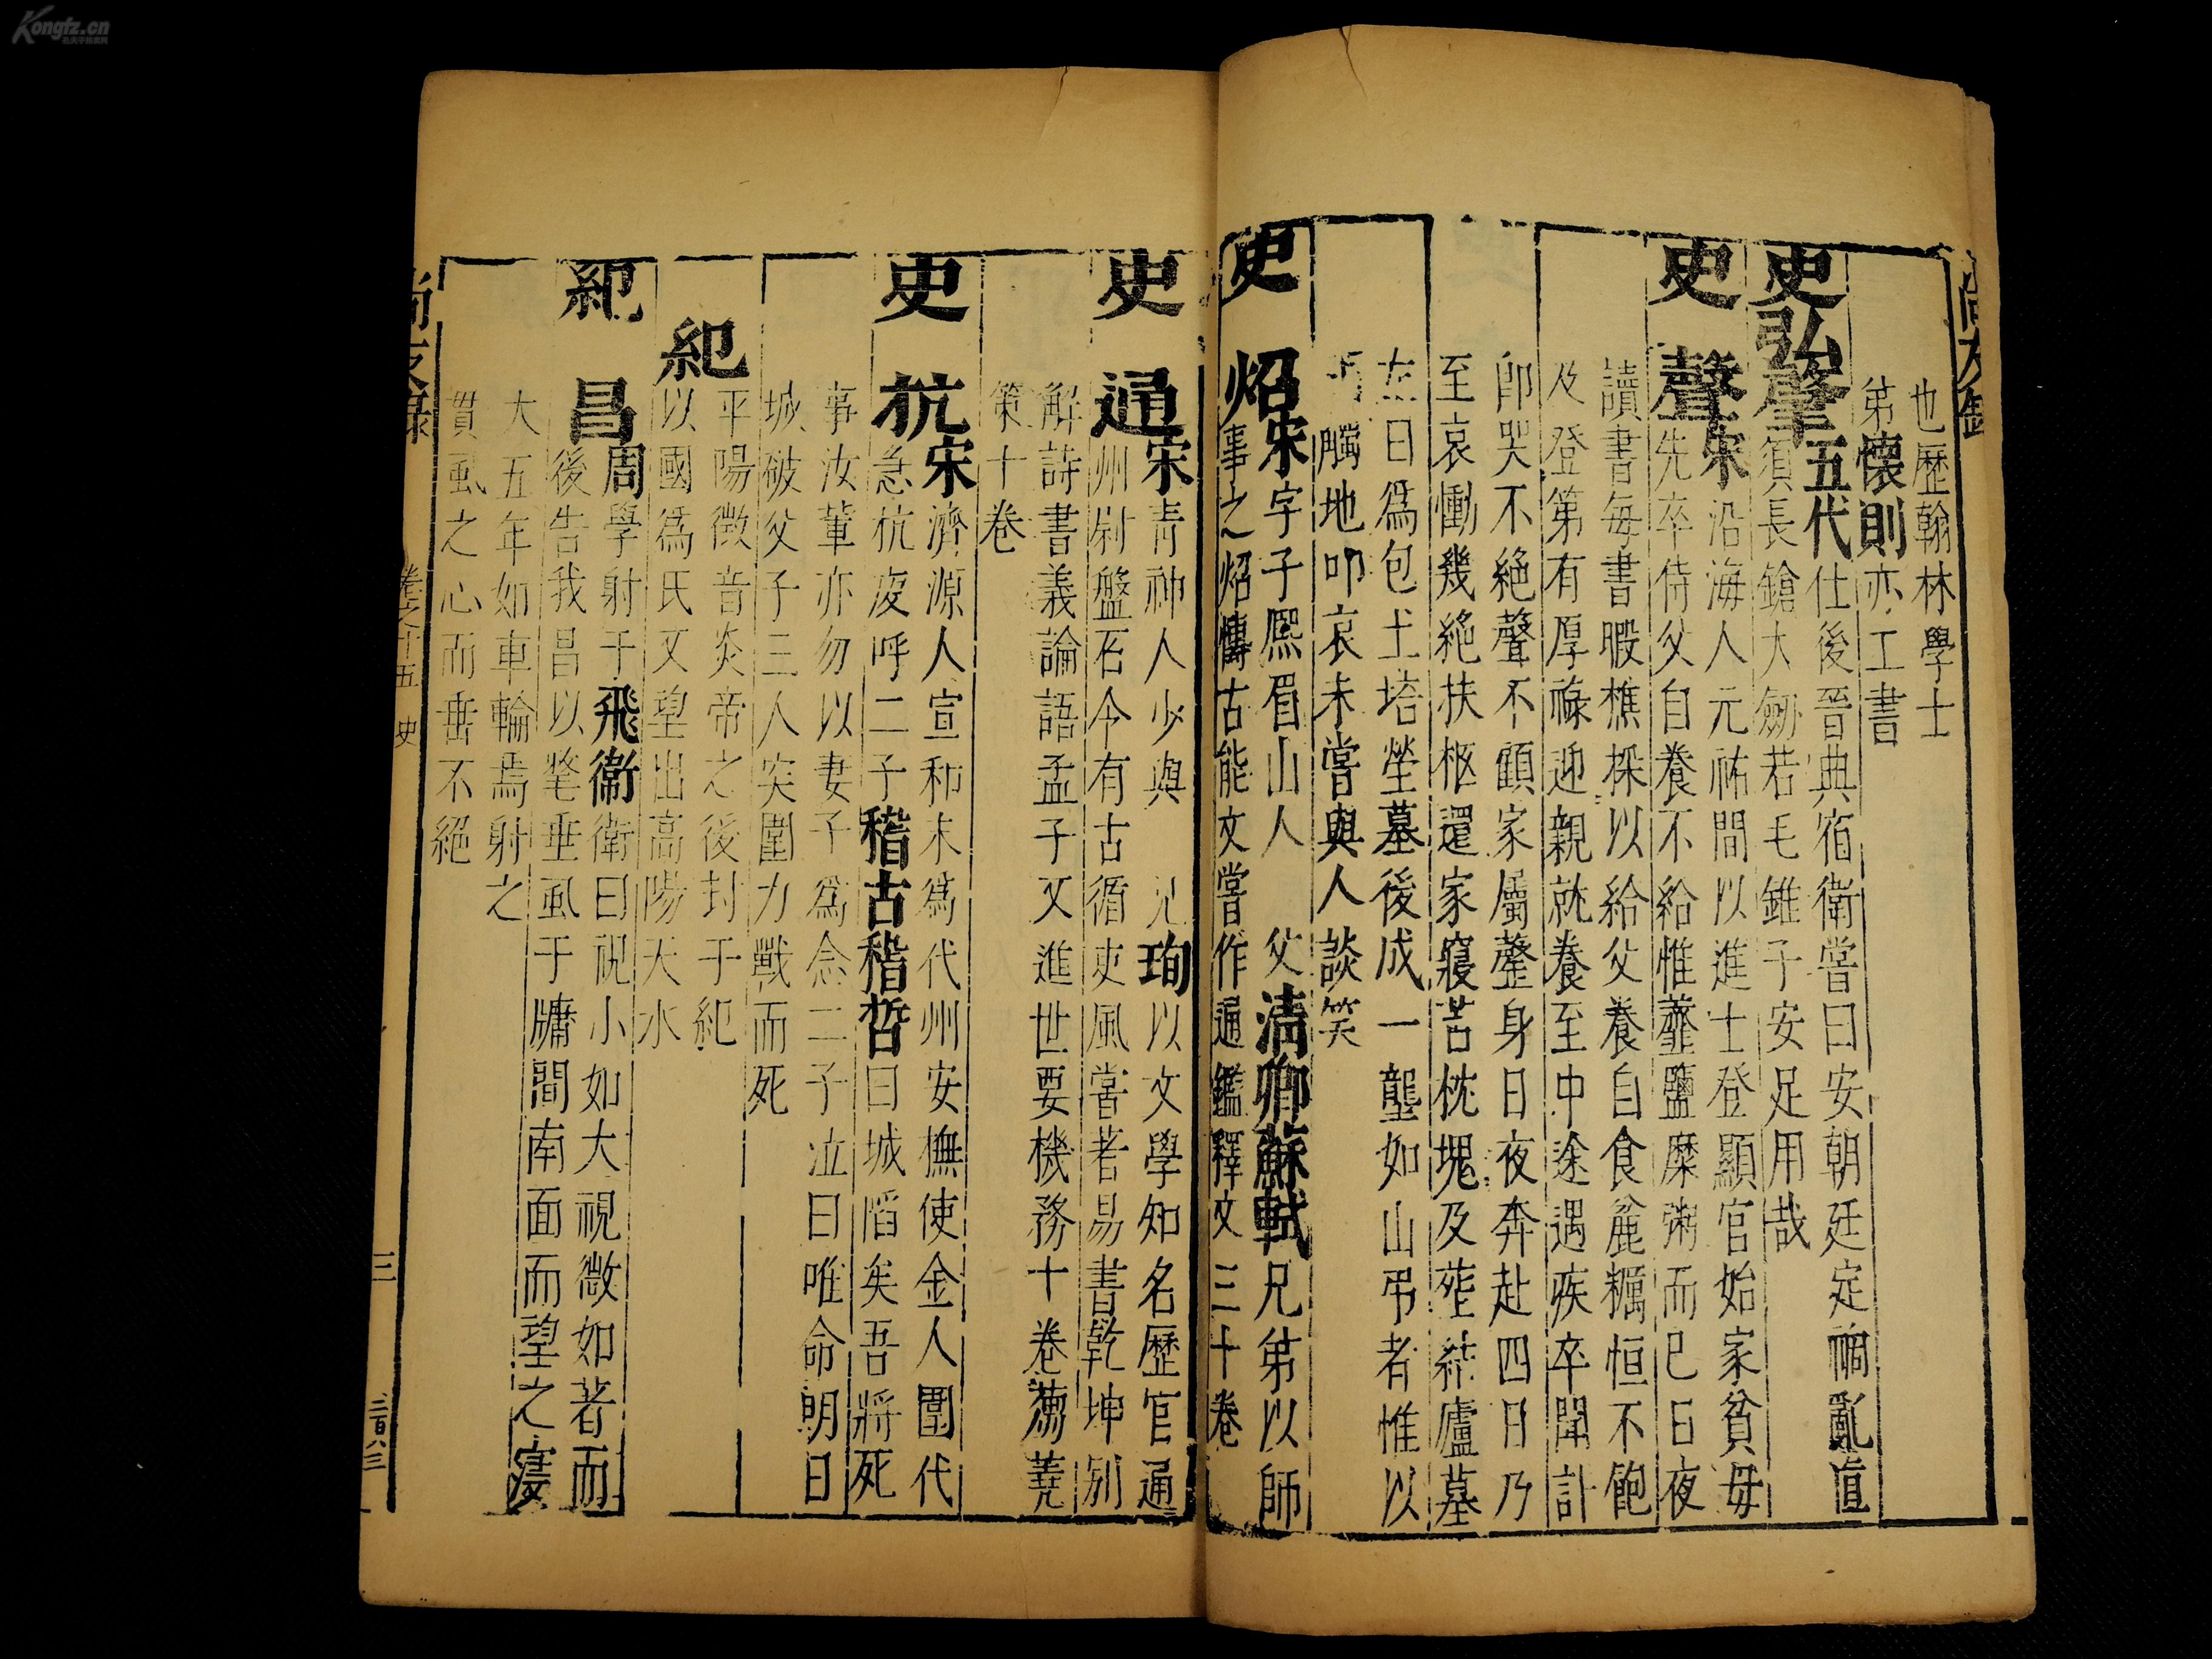 也歷翰林學士
第懷則亦工書
史弘肇五代仕後晉典宿衛嘗曰安朝廷定禍亂直
須長鎗大劍若毛錐子安足用哉
史聲宋沿海人元祐間以進士登顯官始家貧母
先卒侍父自養不給惟虀鹽糜粥而已日夜
讀書每書暇樵採以給父養自食麄糲恒不飽
及登第有厚祿迎親就養至中途遇疾卒聞訃
即哭不絕聲不顧家屬蔾身日夜奔赴四日乃
至哀慟幾絕扶柩還家寢苫枕塊及葬結廬墓
左日為包土塔塋墓後成一壟如山弔者惟以
觸地叩哀未嘗與人談笑
史炤宋字子熙眉山人父清卿蘇軾兄弟以師
事之炤慱古能文嘗作通鑑釋文三十卷
史通宋青神人少與兄珣以文學知名歷官通
州尉盤石令有古循吏風嘗著易書乾坤別
解詩書義論語孟子又進世要機務十卷芻蕘
策十卷
史抗宋濟源人宣和末為代州安撫使金人圍代
急抗夜呼二子稽古稽哲曰城陷矣吾將死
事汝輩亦勿以妻子為念二子泣曰唯命朗日
城破父子三人突圍力戰而死
紀平陽徵音炎帝之後封于紀
以國為氏又望出高陽天水
紀昌周學射于飛衛衛曰視小如大視微如著而
後告我昌以氂垂虱于牖間南面而望之寖
大五年如車輪焉射之
貫虱之心而垂不絕
尚友錄
卷之十五
史
三
三百六三
尚友錄
Kongfz.cn